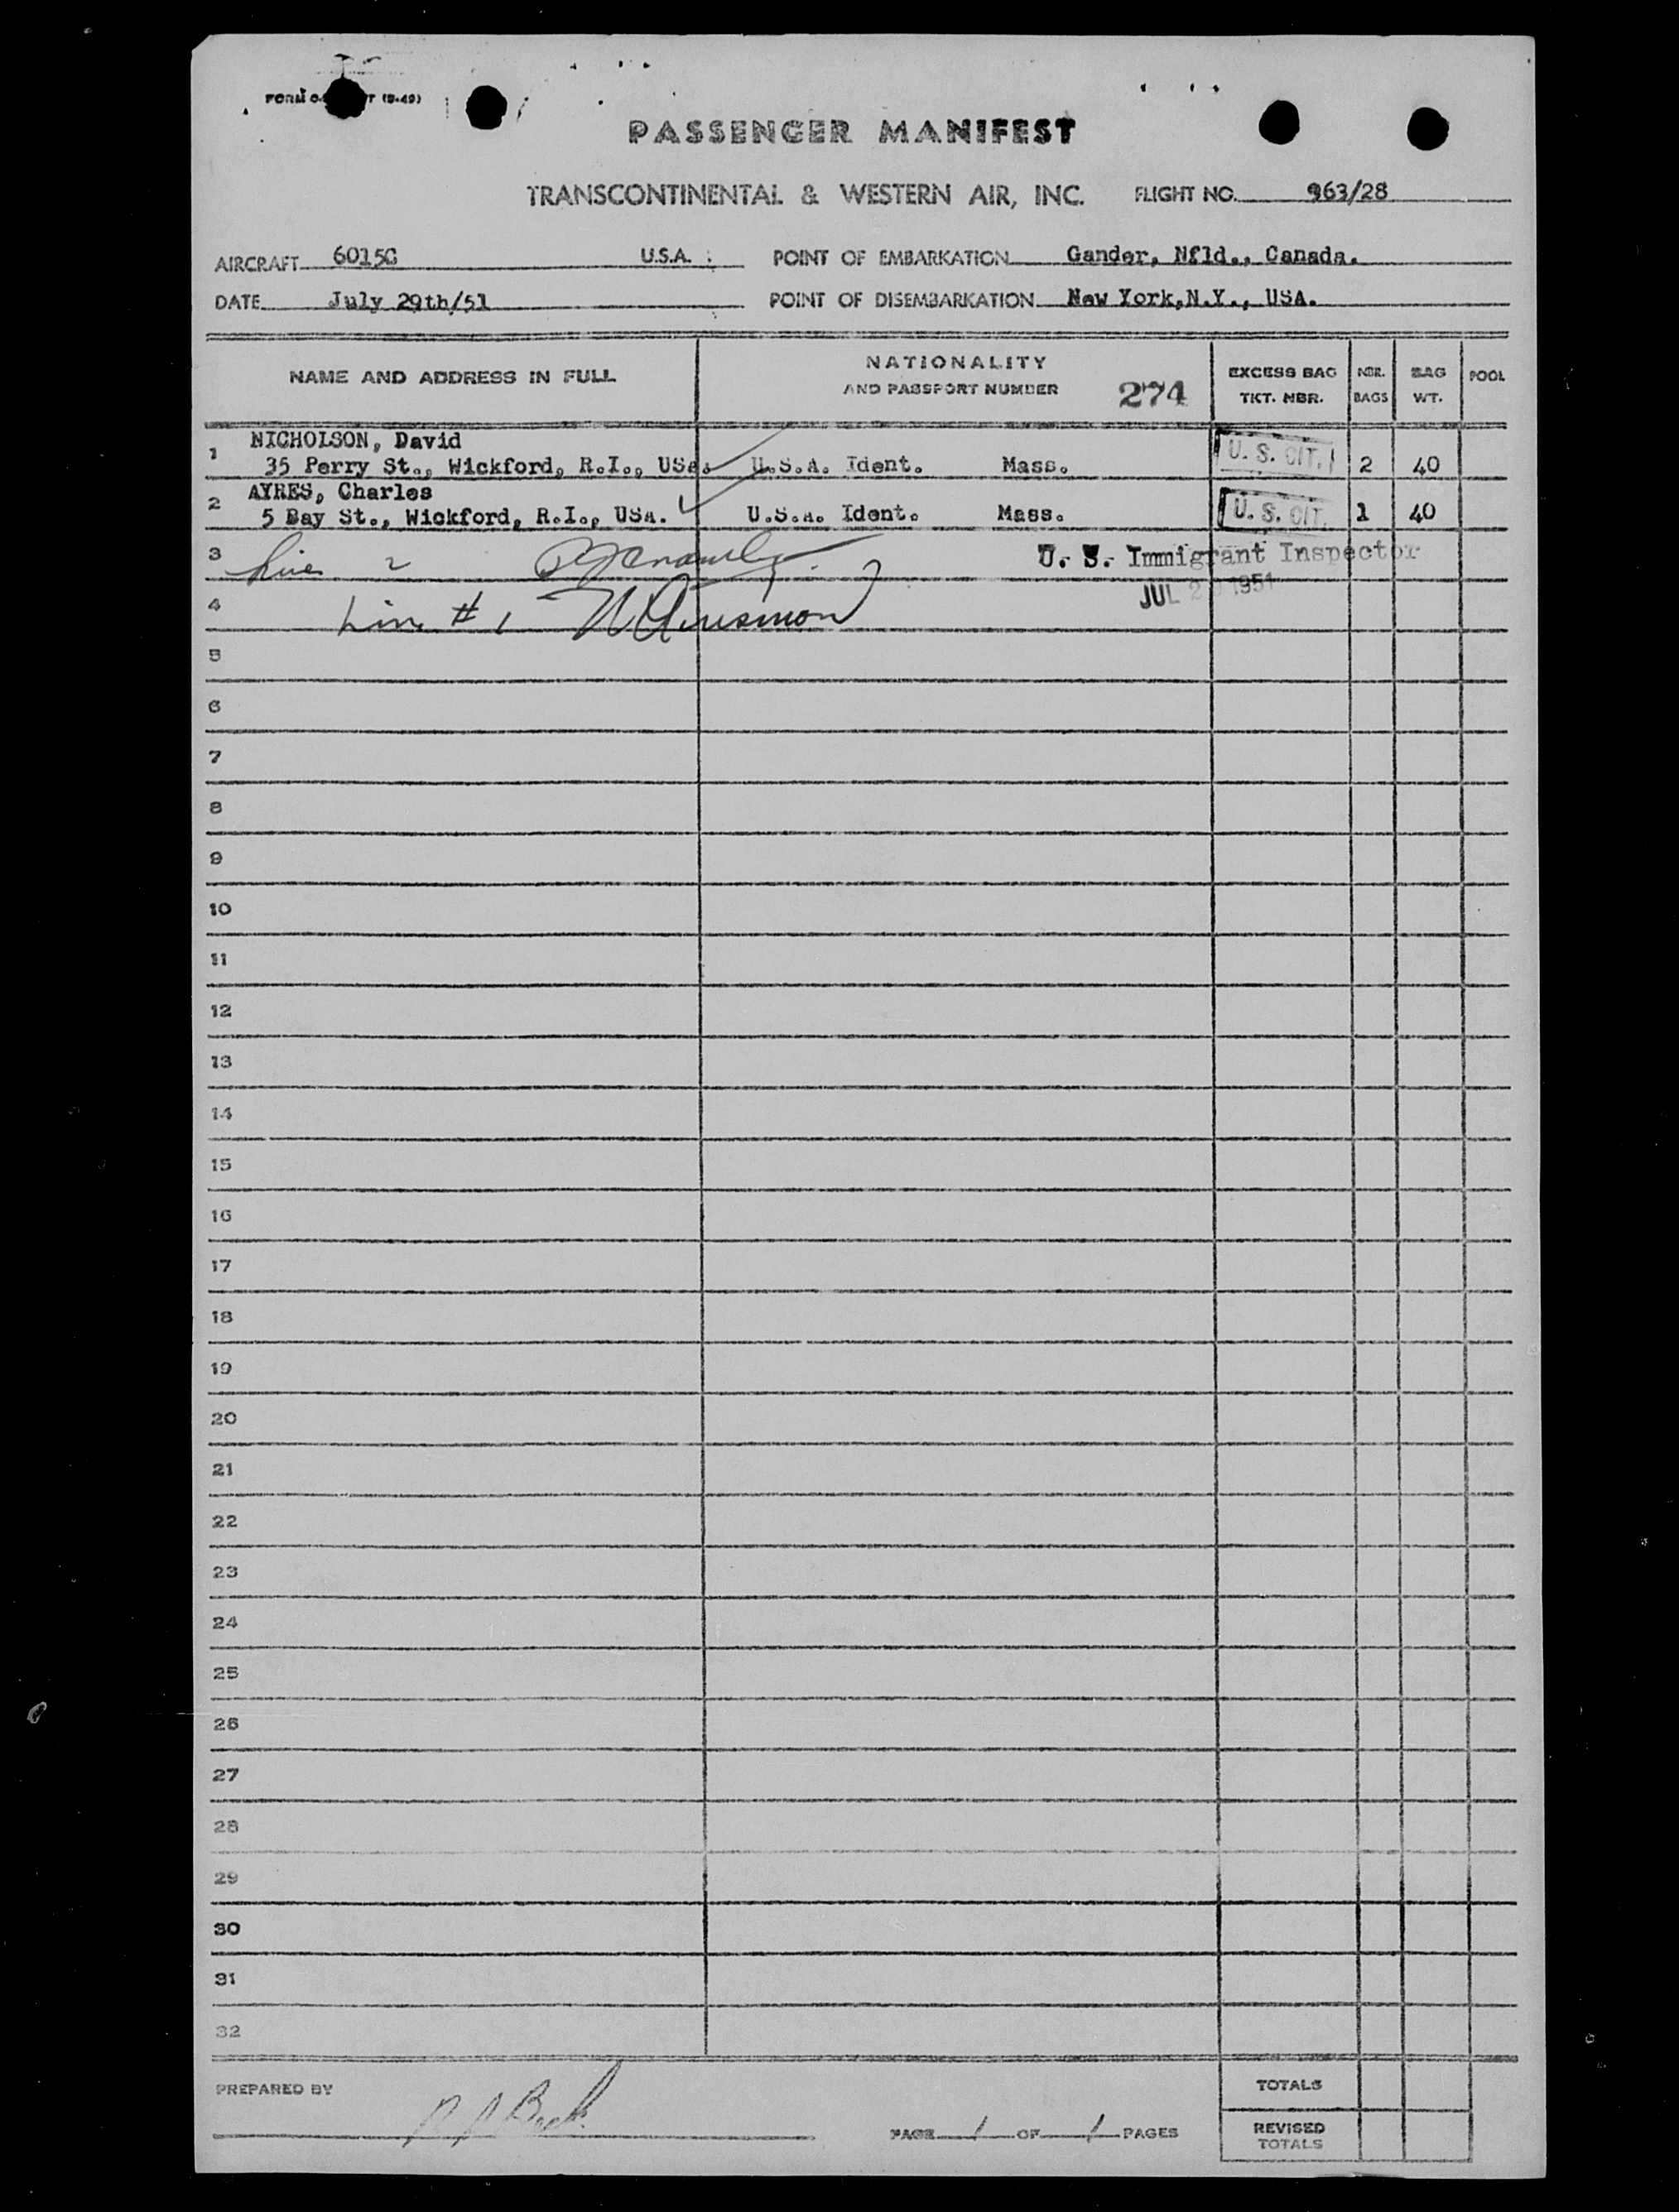 (9-49)
PASSENGER MANIFEST
TRANSCONTINENTAL & WESTERN AIR, INC. FLIGHT NO. 963/28
AIRCRAFT 6015C U.S.A. POINT OF EMBARKATION Gander, Nfld., Canada.
DATE July 29th/51 POINT OF DISEMBARKATION New York,N.Y., USA.
NAME AND ADDRESS IN FULL NATIONALITY AND PASSPORT NUMBER 274 EXCESS BAG TKT. NBR. NBR. BAGS BAG WT. POOL
1 NICHOLSON, David
35 Perry St., Wickford, R.I., USA. U.S.A. Ident. Mass. U. S. CIT. 2 40
2 AYRES, Charles
5 Bay St., Wickford, R.I., USA. U.S.A. Ident. Mass. U. S. CIT. 1 40
3 Line 2 U. S. Immigrant Inspector
JUL 1951
4 Line # 1
5
6
7
8
9
10
11
12
13
14
15
16
17
18
19
20
21
22
23
24
25
26
27
28
29
30
31
32
PREPARED BY TOTALS
PAGE 1 OF 1 PAGES REVISED TOTALS